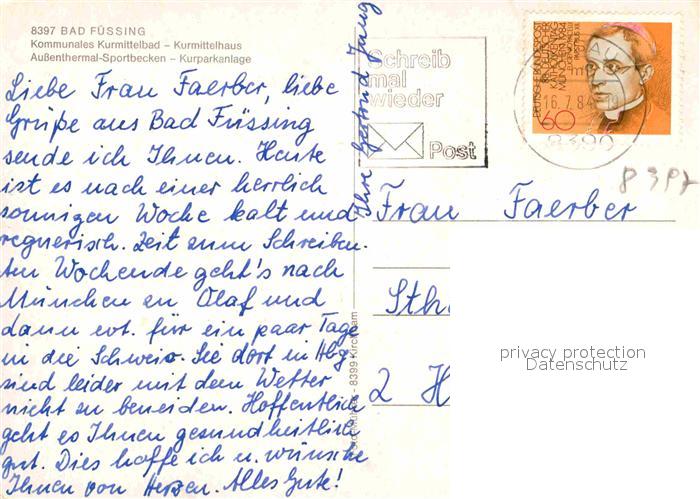 8397 BAD FÜSSING
Kommunales Kurmittelbad – Kurmittelhaus
Außenthermal-Sportbecken – Kurparkanlage
Liebe Frau Faerber, liebe
Grüße aus Bad Füssing
sende ich Ihnen. Heute
ist es nach einer herrlich
sonnigen Woche kalt und
regnerisch. Zeit zum Schreiben.
Am Wochende geht's nach
München zu Olaf und
dann evt. für ein paar Tage
in die Schweiz. Sie dort in Hbg.
sind leider mit dem Wetter
nicht zu beneiden. Hoffentlich
geht es Ihnen gesundheitlich
gut. Dies hoffe ich u. wünsche
Ihnen von Herzen. Alles Gute!
Ihre Gertrud Jung
Schreib
mal
wieder
Post
DEUTSCHE BUNDESPOST
60
16.7.84
8390
8397
Frau Faerber
Sth
2 H
8399 Kirchham
privacy protection
Datenschutz